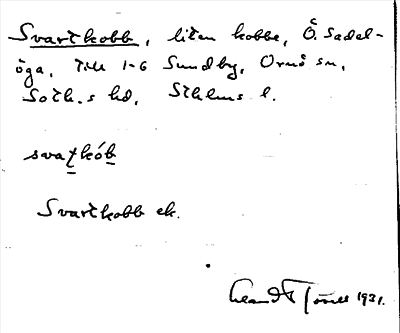 Svartkobb, liten kobbe, Ö. Sadel-
öga, till 1-6 Sundby, Ornö sn,
Soth.s hd, Sthlms l.
svaṭkób̲
Svartkobb ek.
1931.